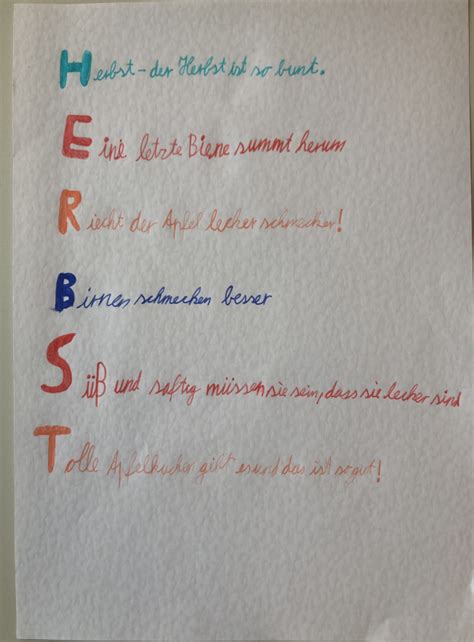 Herbst - der Herbst ist so bunt.
Eine letzte Biene summt herum
Riecht der Apfel lecher schmecker!
Birnen schmecken besser
Süß und saftig müssen sie sein, dass sie lecher sind
Tolle Apfelkuchen gibt es und das ist so gut!